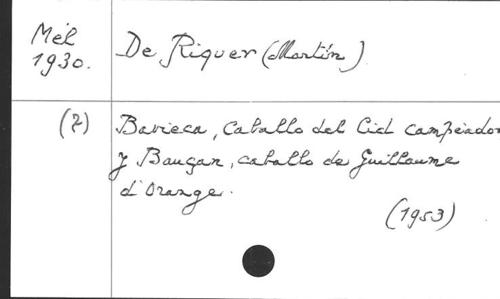 Mél
1930.
De Riquer (Martín)
(7)
Bavieca, caballo del Cid campeador
y Baucan, caballo de Guillaume
d'Orange.
(1953)